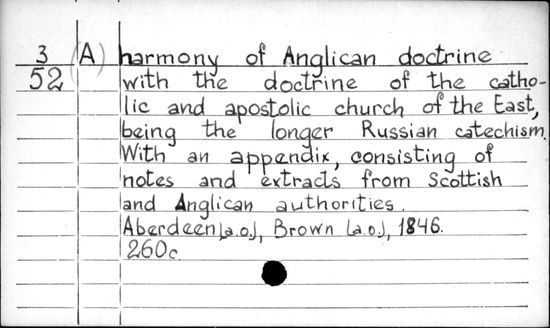 3 (A) harmony of Anglican doctrine
52 with the doctrine of the catho-
lic and apostolic church of the East,
being the longer Russian catechism.
With an appendix, consisting of
notes and extracts from Scottish
and Anglican authorities.
Aberdeen [a.o.], Brown [a.o.], 1846.
260c.